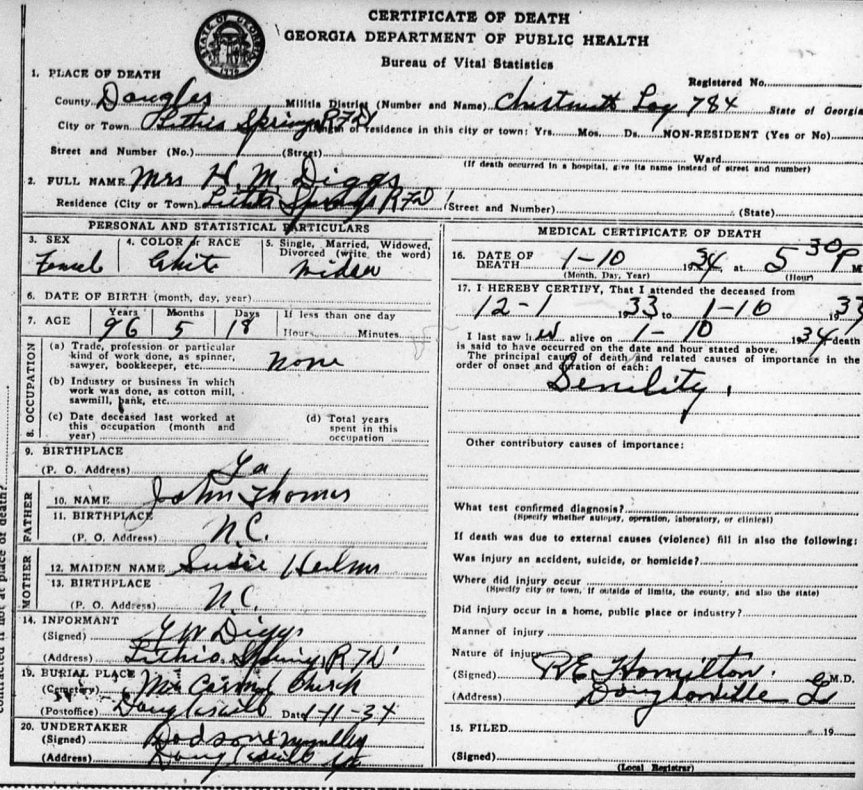 CERTIFICATE OF DEATH
GEORGIA DEPARTMENT OF PUBLIC HEALTH
Bureau of Vital Statistics
STATE OF GEORGIA
1776
Registered No.
1. PLACE OF DEATH
County Douglas Militia District (Number and Name) Chestnutt Log 784 State of Georgia
City or Town Lithia Springs RFD 1 Length of residence in this city or town: Yrs. Mos. Ds. NON-RESIDENT (Yes or No)
Street and Number (No.) (Street) Ward
(If death occurred in a hospital, give its name instead of street and number)
2. FULL NAME Mrs H M Diggs
Residence (City or Town) Lithia Springs RFD 1 (Street and Number) (State)
PERSONAL AND STATISTICAL PARTICULARS
3. SEX Femal
4. COLOR or RACE White
5. Single, Married, Widowed, Divorced (write the word) Widow
6. DATE OF BIRTH (month, day, year)
7. AGE Years 96 Months 5 Days 18 If less than one day
Hours Minutes
8. OCCUPATION
(a) Trade, profession or particular
kind of work done, as spinner,
sawyer, bookkeeper, etc. none
(b) Industry or business in which
work was done, as cotton mill,
sawmill, bank, etc.
(c) Date deceased last worked at
this occupation (month and
year)
(d) Total years
spent in this
occupation
9. BIRTHPLACE
(P. O. Address) Ga
FATHER
10. NAME John Thomas
11. BIRTHPLACE
(P. O. Address) N.C.
MOTHER
12. MAIDEN NAME Susie
13. BIRTHPLACE
(P. O. Address) N.C.
14. INFORMANT
(Signed) Diggs
(Address) Lithia Springs R7D1
19. BURIAL PLACE
(Cemetery) Church
(Postoffice) Douglasville Date 1-11-34
20. UNDERTAKER
(Signed) Dodson
(Address) Douglasville Ga
MEDICAL CERTIFICATE OF DEATH
16. DATE OF
DEATH 1-10 1934 at 5 30 P M
(Month, Day, Year) (Hour)
17. I HEREBY CERTIFY, That I attended the deceased from
12-1 1933 to 1-10 1933
I last saw her alive on 1-10 1934 death
is said to have occurred on the date and hour stated above.
The principal cause of death and related causes of importance in the
order of onset and duration of each:
Senility.
Other contributory causes of importance:
What test confirmed diagnosis?
(Specify whether autopsy, operation, laboratory, or clinical)
If death was due to external causes (violence) fill in also the following:
Was injury an accident, suicide, or homicide?
Where did injury occur
(Specify city or town, if outside of limits, the county, and also the state)
Did injury occur in a home, public place or industry?
Manner of injury
Nature of injury
(Signed) R E Hamilton M.D.
(Address) Douglasville Ga
15. FILED 19
(Signed)
(Local Registrar)
contracted if not at place of death?